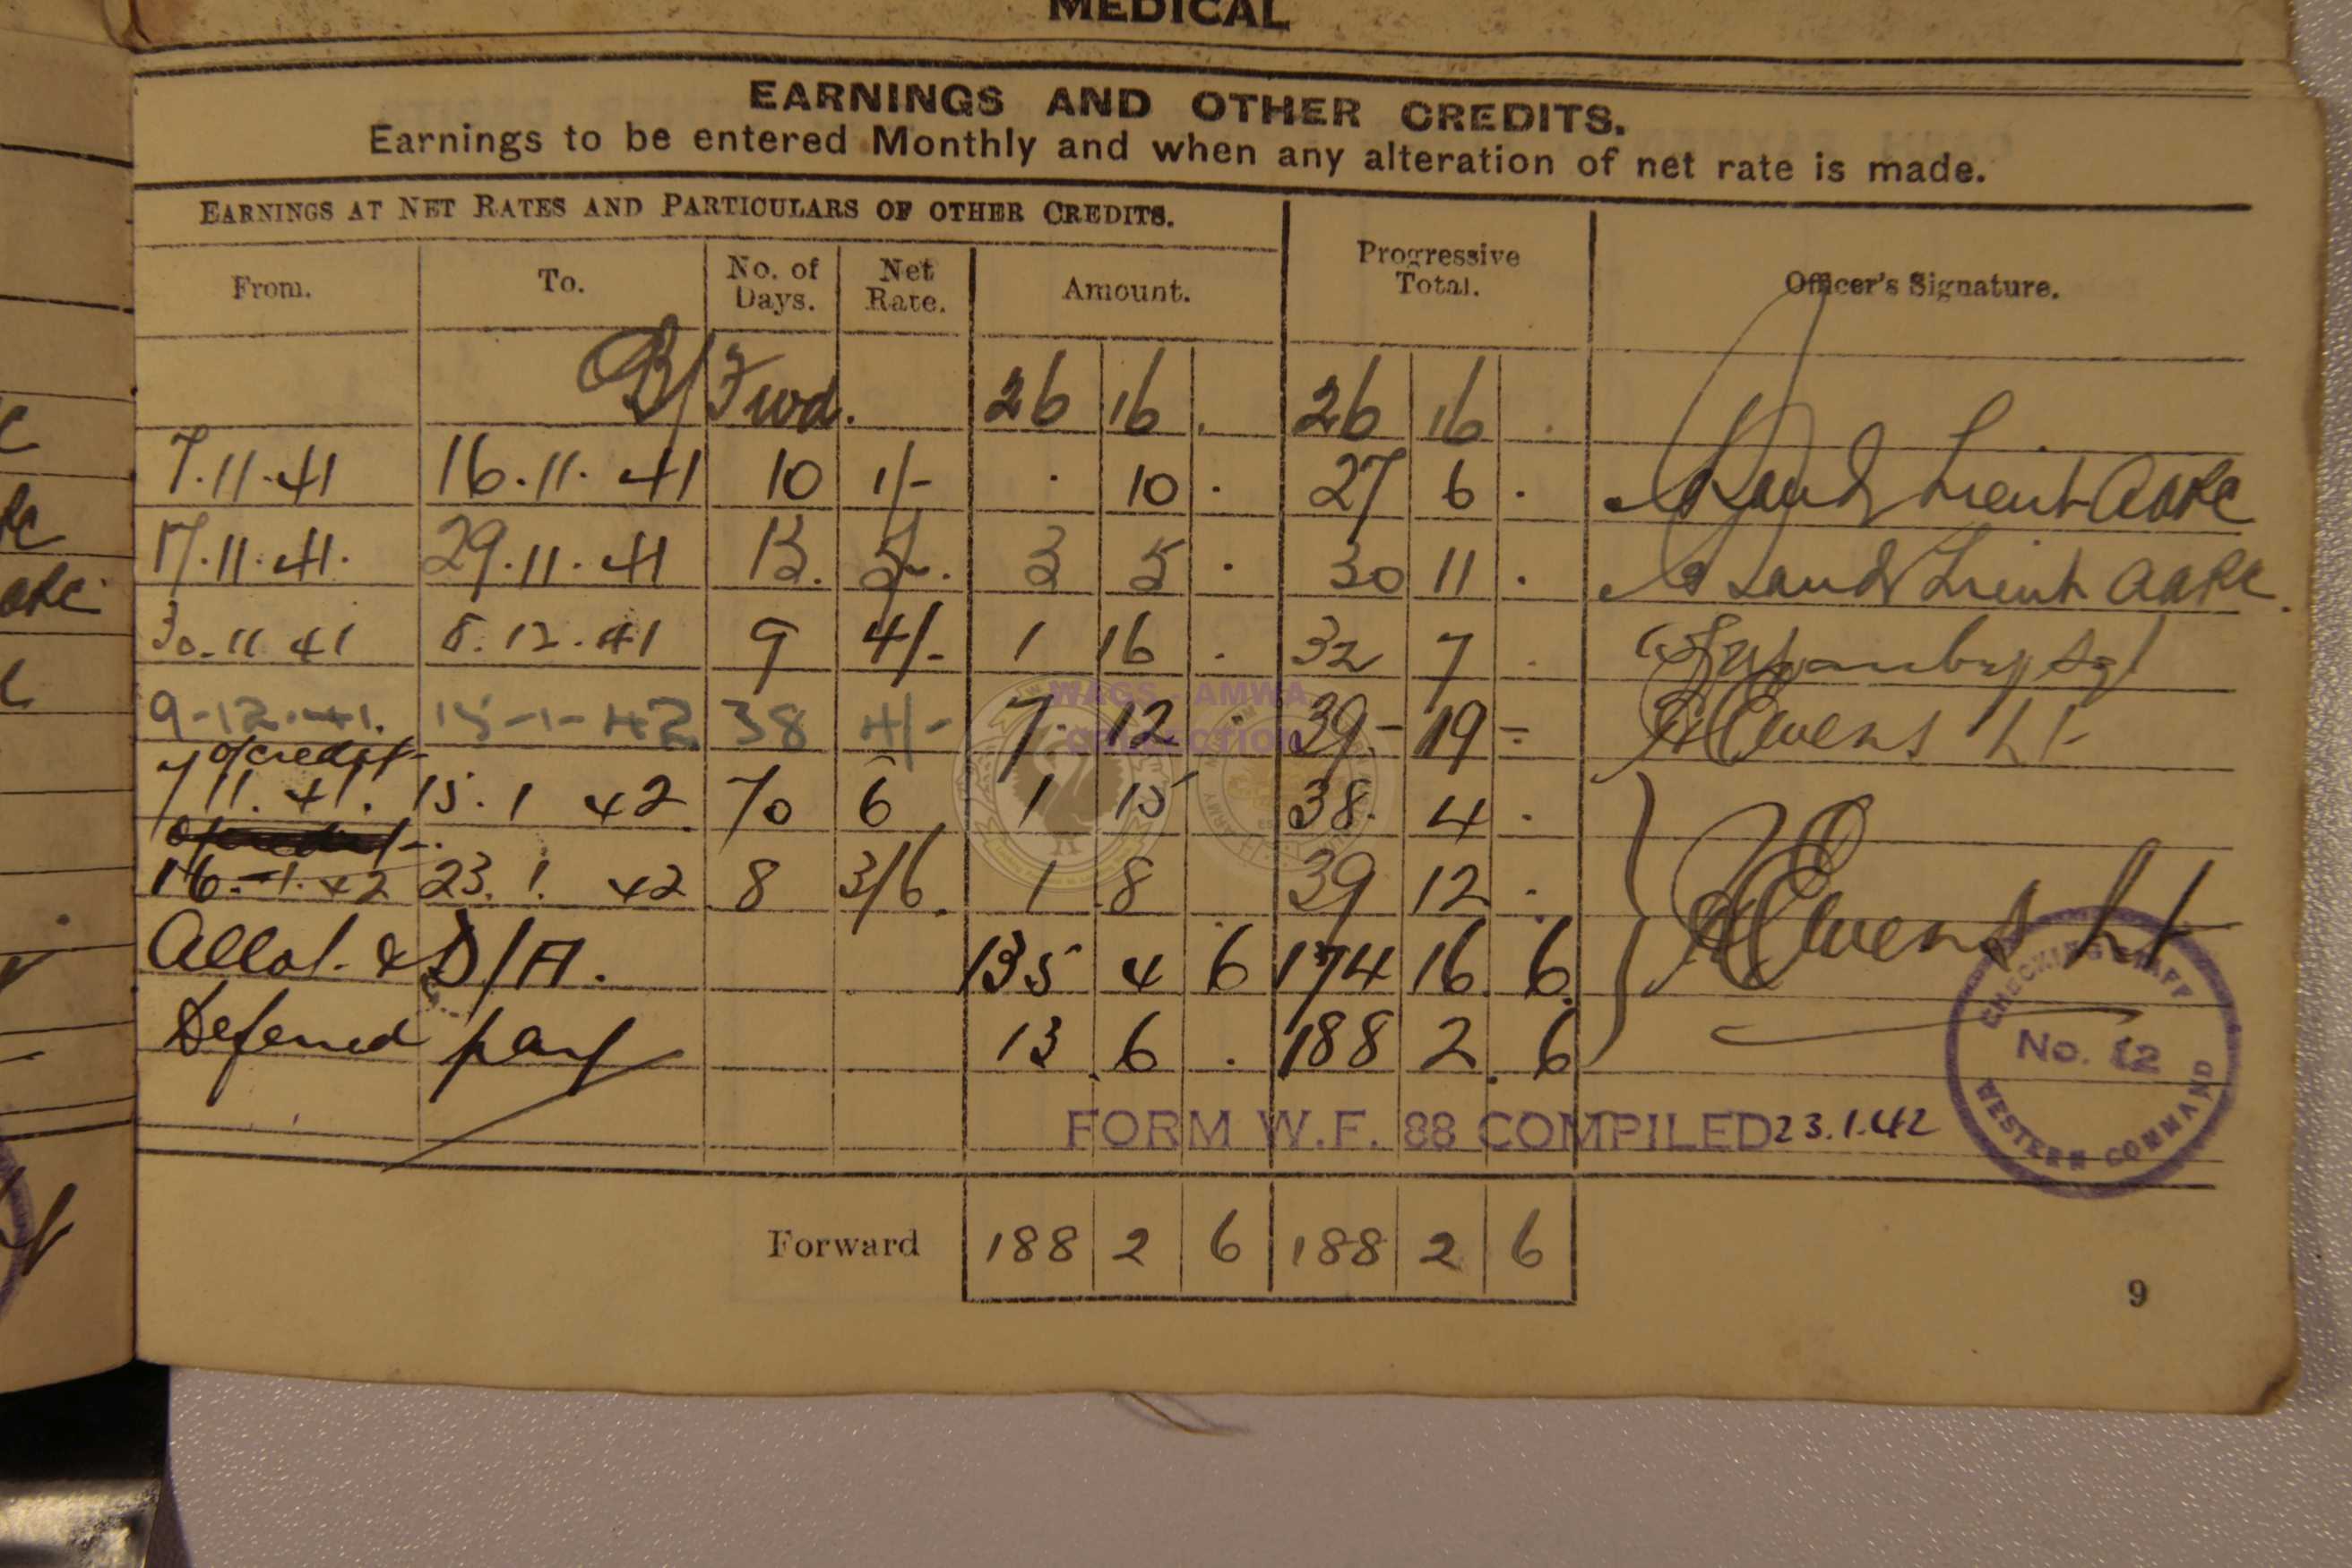 MEDICAL
EARNINGS AND OTHER CREDITS.
Earnings to be entered Monthly and when any alteration of net rate is made.
EARNINGS AT NET RATES AND PARTICULARS OF OTHER CREDITS.
From. To. No. of Days. Net Rate. Amount. Progressive Total. Officer's Signature.
B/Fwd. 26 16 . 26 16 .
7.11.41 16.11.41 10 1/- . 10 . 27 6 . Lieut AAPC
17.11.41. 29.11.41 13. 5/-. 3 5 . 30 11 . Lieut AAPC.
30.11 41 8.12.41 9 4/- 1 16 . 32 7 . Sgt
9-12-41. 15-1-42 38 4/- 7. 12 . 39- 19 = Owens Lt
o/credit
7 11. 41. 15. 1 42 70 6 1 15 38. 4 .
16.-1.42 23. 1. 42 8 3/6. 1 8 . 39 12 .
Allot. & D/A. 135 4 6 174 16. 6. Owens Lt
Deferred pay 13. 6 . 188 2. 6
FORM W.F. 88 COMPILED 23.1.42
CHECKING STAFF
No. 12
WESTERN COMMAND
Forward 188 2 6 188 2 6
9
WAGS - AMWA
COLLECTION